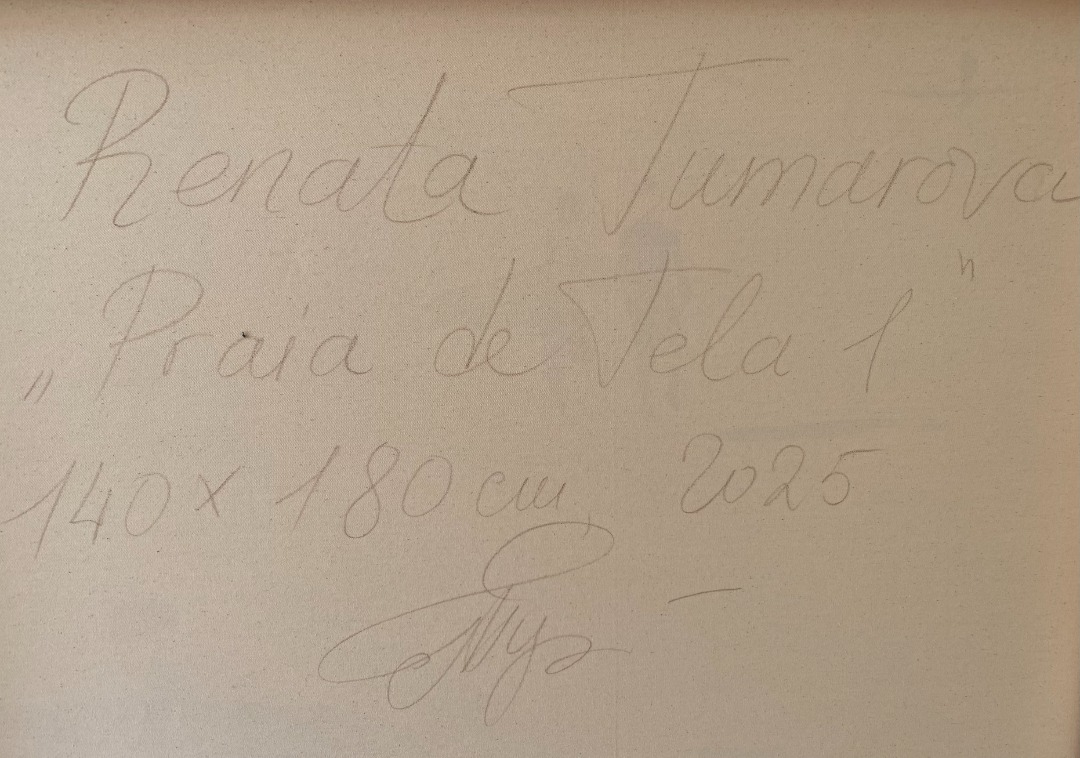 Renata Tumarova
„Praia de Tela 1"
140 x 180 cm 2025